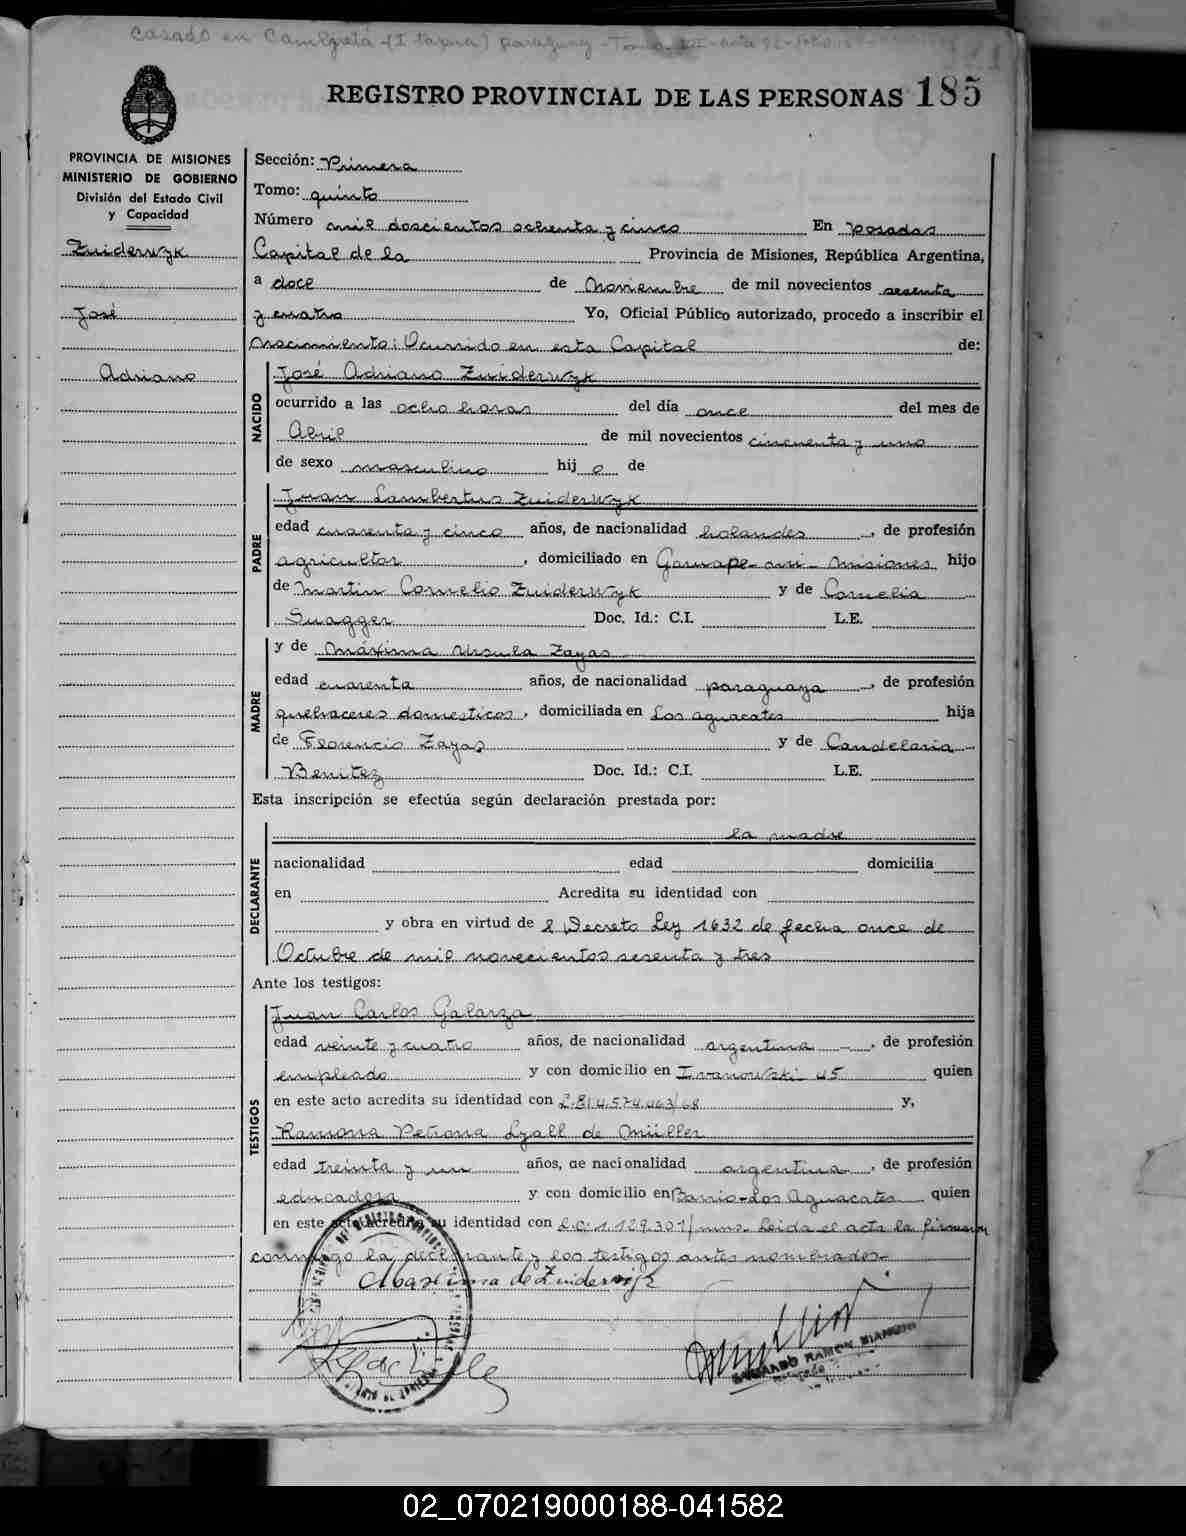 Casado en Cambyretá - (Itapua) paraguay - Tomo III - acta 92 - folio
REGISTRO PROVINCIAL DE LAS PERSONAS 185
PROVINCIA DE MISIONES
MINISTERIO DE GOBIERNO
División del Estado Civil
y Capacidad
Zuiderwyk
José
Adriano
Sección: Primera
Tomo: quinto
Número mil doscientos ochenta y cinco En Posadas
Capital de la Provincia de Misiones, República Argentina,
a doce de Noviembre de mil novecientos sesenta
y cuatro Yo, Oficial Público autorizado, procedo a inscribir el
nacimiento: Ocurrido en esta Capital de:
NACIDO
José Adriano Zuiderwyk
ocurrido a las ocho horas del día once del mes de
Abril de mil novecientos cincuenta y uno
de sexo masculino hij o de
PADRE
Juan Lambertus Zuiderwyk
edad cuarenta y cinco años, de nacionalidad holandes, de profesión
agricultor, domiciliado en Garuape-mi- Misiones hijo
de Martin Cornelio Zuiderwyk y de Cornelia
Snagger Doc. Id.: C.I. L.E.
MADRE
y de Máxima Ursula Zayas
edad cuarenta años, de nacionalidad paraguaya, de profesión
quehaceres domesticos, domiciliada en Los aguacates hija
de Florencio Zayas y de Candelaria
Benitez Doc. Id.: C.I. L.E.
Esta inscripción se efectúa según declaración prestada por:
DECLARANTE
la madre
nacionalidad edad domicilia
en Acredita su identidad con
y obra en virtud de l Decreto Ley 1632 de fecha once de
Octubre de mil novecientos sesenta y tres
Ante los testigos:
TESTIGOS
Juan Carlos Galarza
edad veinte y cuatro años, de nacionalidad argentina, de profesión
empleado y con domicilio en Ivanowski 45 quien
en este acto acredita su identidad con L.E. 4.574.463/68 y,
Ramona Petrona Lyall de Müller
edad treinta y un años, de nacionalidad argentina, de profesión
educadora y con domicilio en Barrio-Los Aguacates quien
en este acto acredita su identidad con L.C. 1.129.301/mns. Leida el acta la firman
conmigo la declarante y los testigos antes nombrados-
Maxima de Zuiderwijk
RAMON BIANCHI
02_070219000188-041582